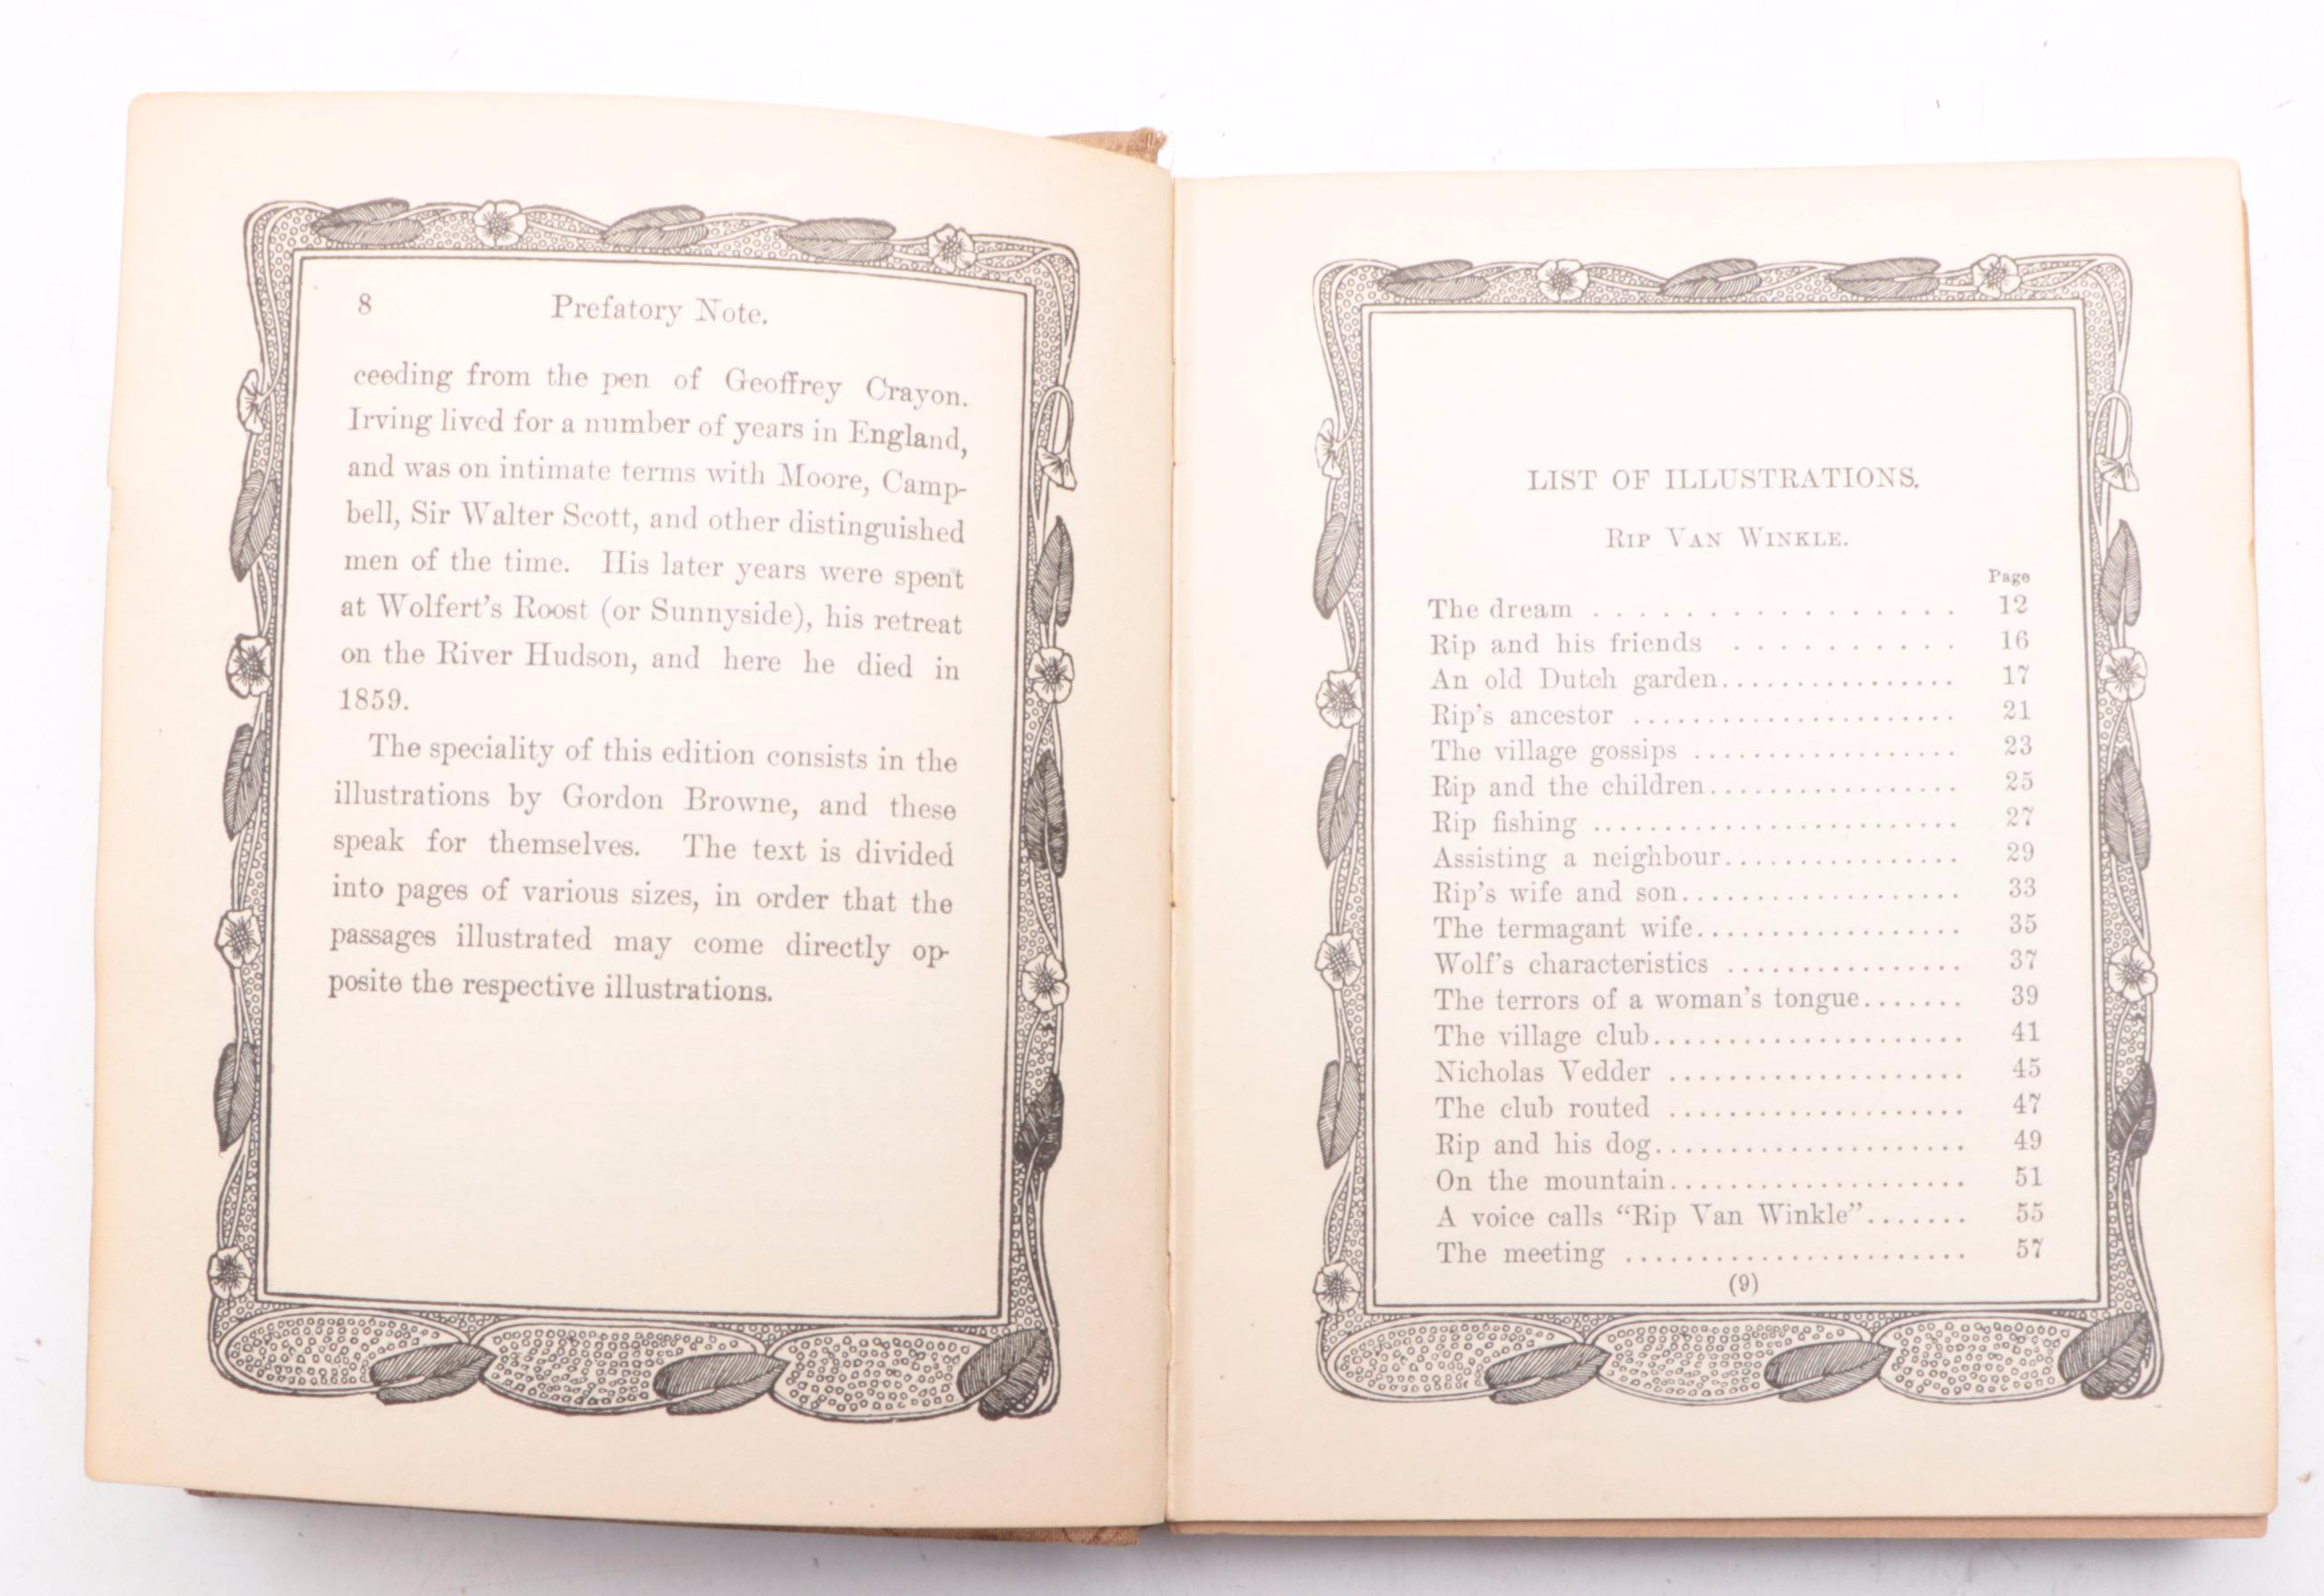 8 Prefatory Note.
ceeding from the pen of Geoffrey Crayon.
Irving lived for a number of years in England,
and was on intimate terms with Moore, Camp-
bell, Sir Walter Scott, and other distinguished
men of the time. His later years were spent
at Wolfert's Roost (or Sunnyside), his retreat
on the River Hudson, and here he died in
1859.
The speciality of this edition consists in the
illustrations by Gordon Browne, and these
speak for themselves. The text is divided
into pages of various sizes, in order that the
passages illustrated may come directly op-
posite the respective illustrations.
LIST OF ILLUSTRATIONS.
RIP VAN WINKLE.
Page
The dream . . . . . . . . . . . . . . . . 12
Rip and his friends . . . . . . . . . . 16
An old Dutch garden................ 17
Rip's ancestor ...................... 21
The village gossips .................. 23
Rip and the children................. 25
Rip fishing ......................... 27
Assisting a neighbour................ 29
Rip's wife and son................... 33
The termagant wife.................. 35
Wolf's characteristics ................ 37
The terrors of a woman's tongue....... 39
The village club..................... 41
Nicholas Vedder .................... 45
The club routed .................... 47
Rip and his dog..................... 49
On the mountain.................... 51
A voice calls “Rip Van Winkle”....... 55
The meeting ....................... 57
(9)